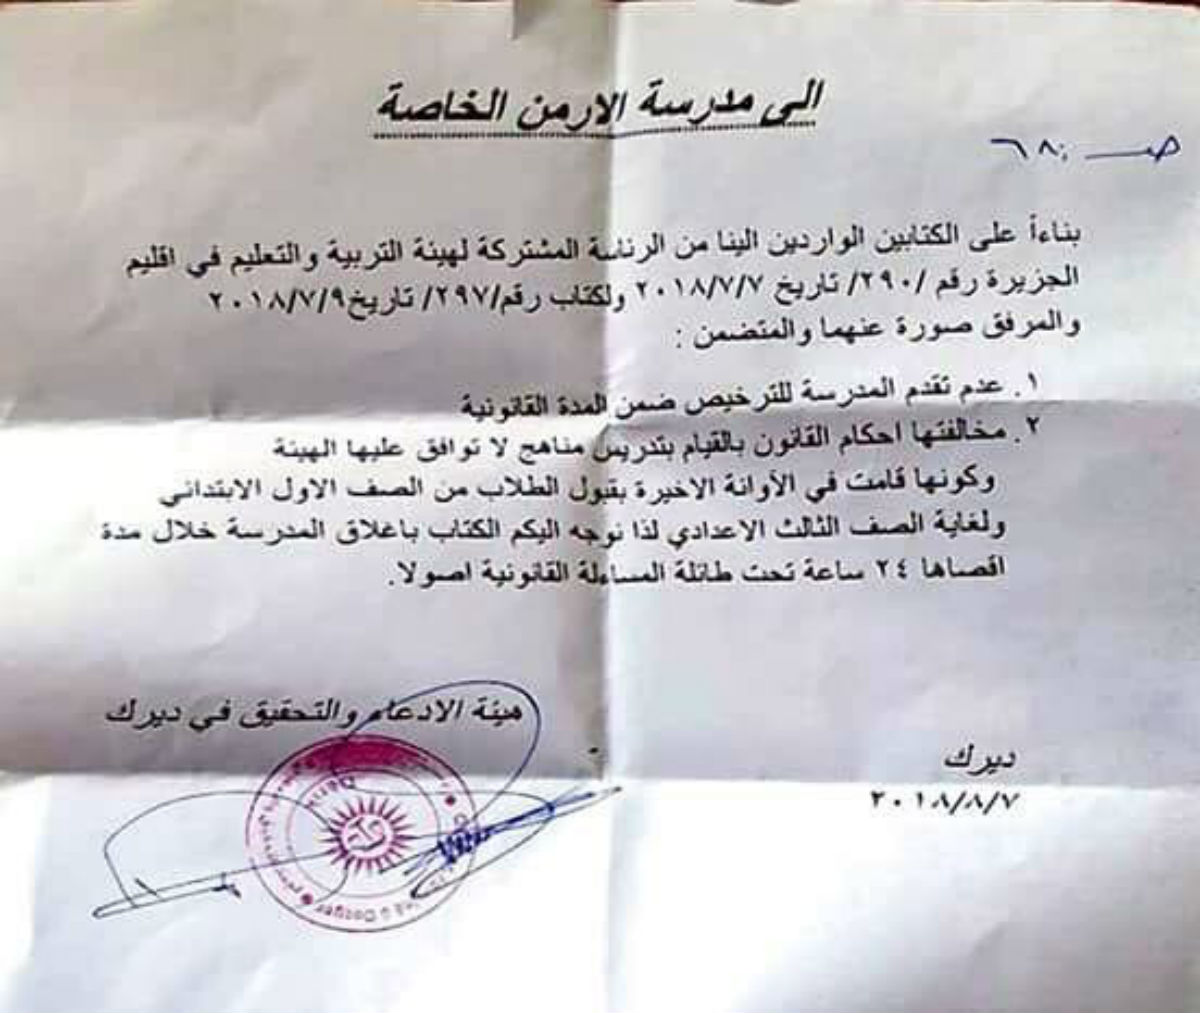 الى مدرسة الارمن الخاصة
صـــ ٦٨٠
بناءاً على الكتابين الواردين الينا من الرئاسة المشتركة لهيئة التربية والتعليم في اقليم
الجزيرة رقم /٢٩٠/ تاريخ ٢٠١٨/٧/٧ ولكتاب رقم/٢٩٧/ تاريخ٢٠١٨/٧/٩
والمرفق صورة عنهما والمتضمن :
١. عدم تقدم المدرسة للترخيص ضمن المدة القانونية
٢. مخالفتها احكام القانون بالقيام بتدريس مناهج لا توافق عليها الهيئة
وكونها قامت في الآوانة الاخيرة بقبول الطلاب من الصف الاول الابتدائي
ولغاية الصف الثالث الاعدادي لذا نوجه اليكم الكتاب باغلاق المدرسة خلال مدة
اقصاها ٢٤ ساعة تحت طائلة المساءلة القانونية اصولا.
هيئة الادعاء والتحقيق في ديرك
ديرك
٢٠١٨/٨/٧